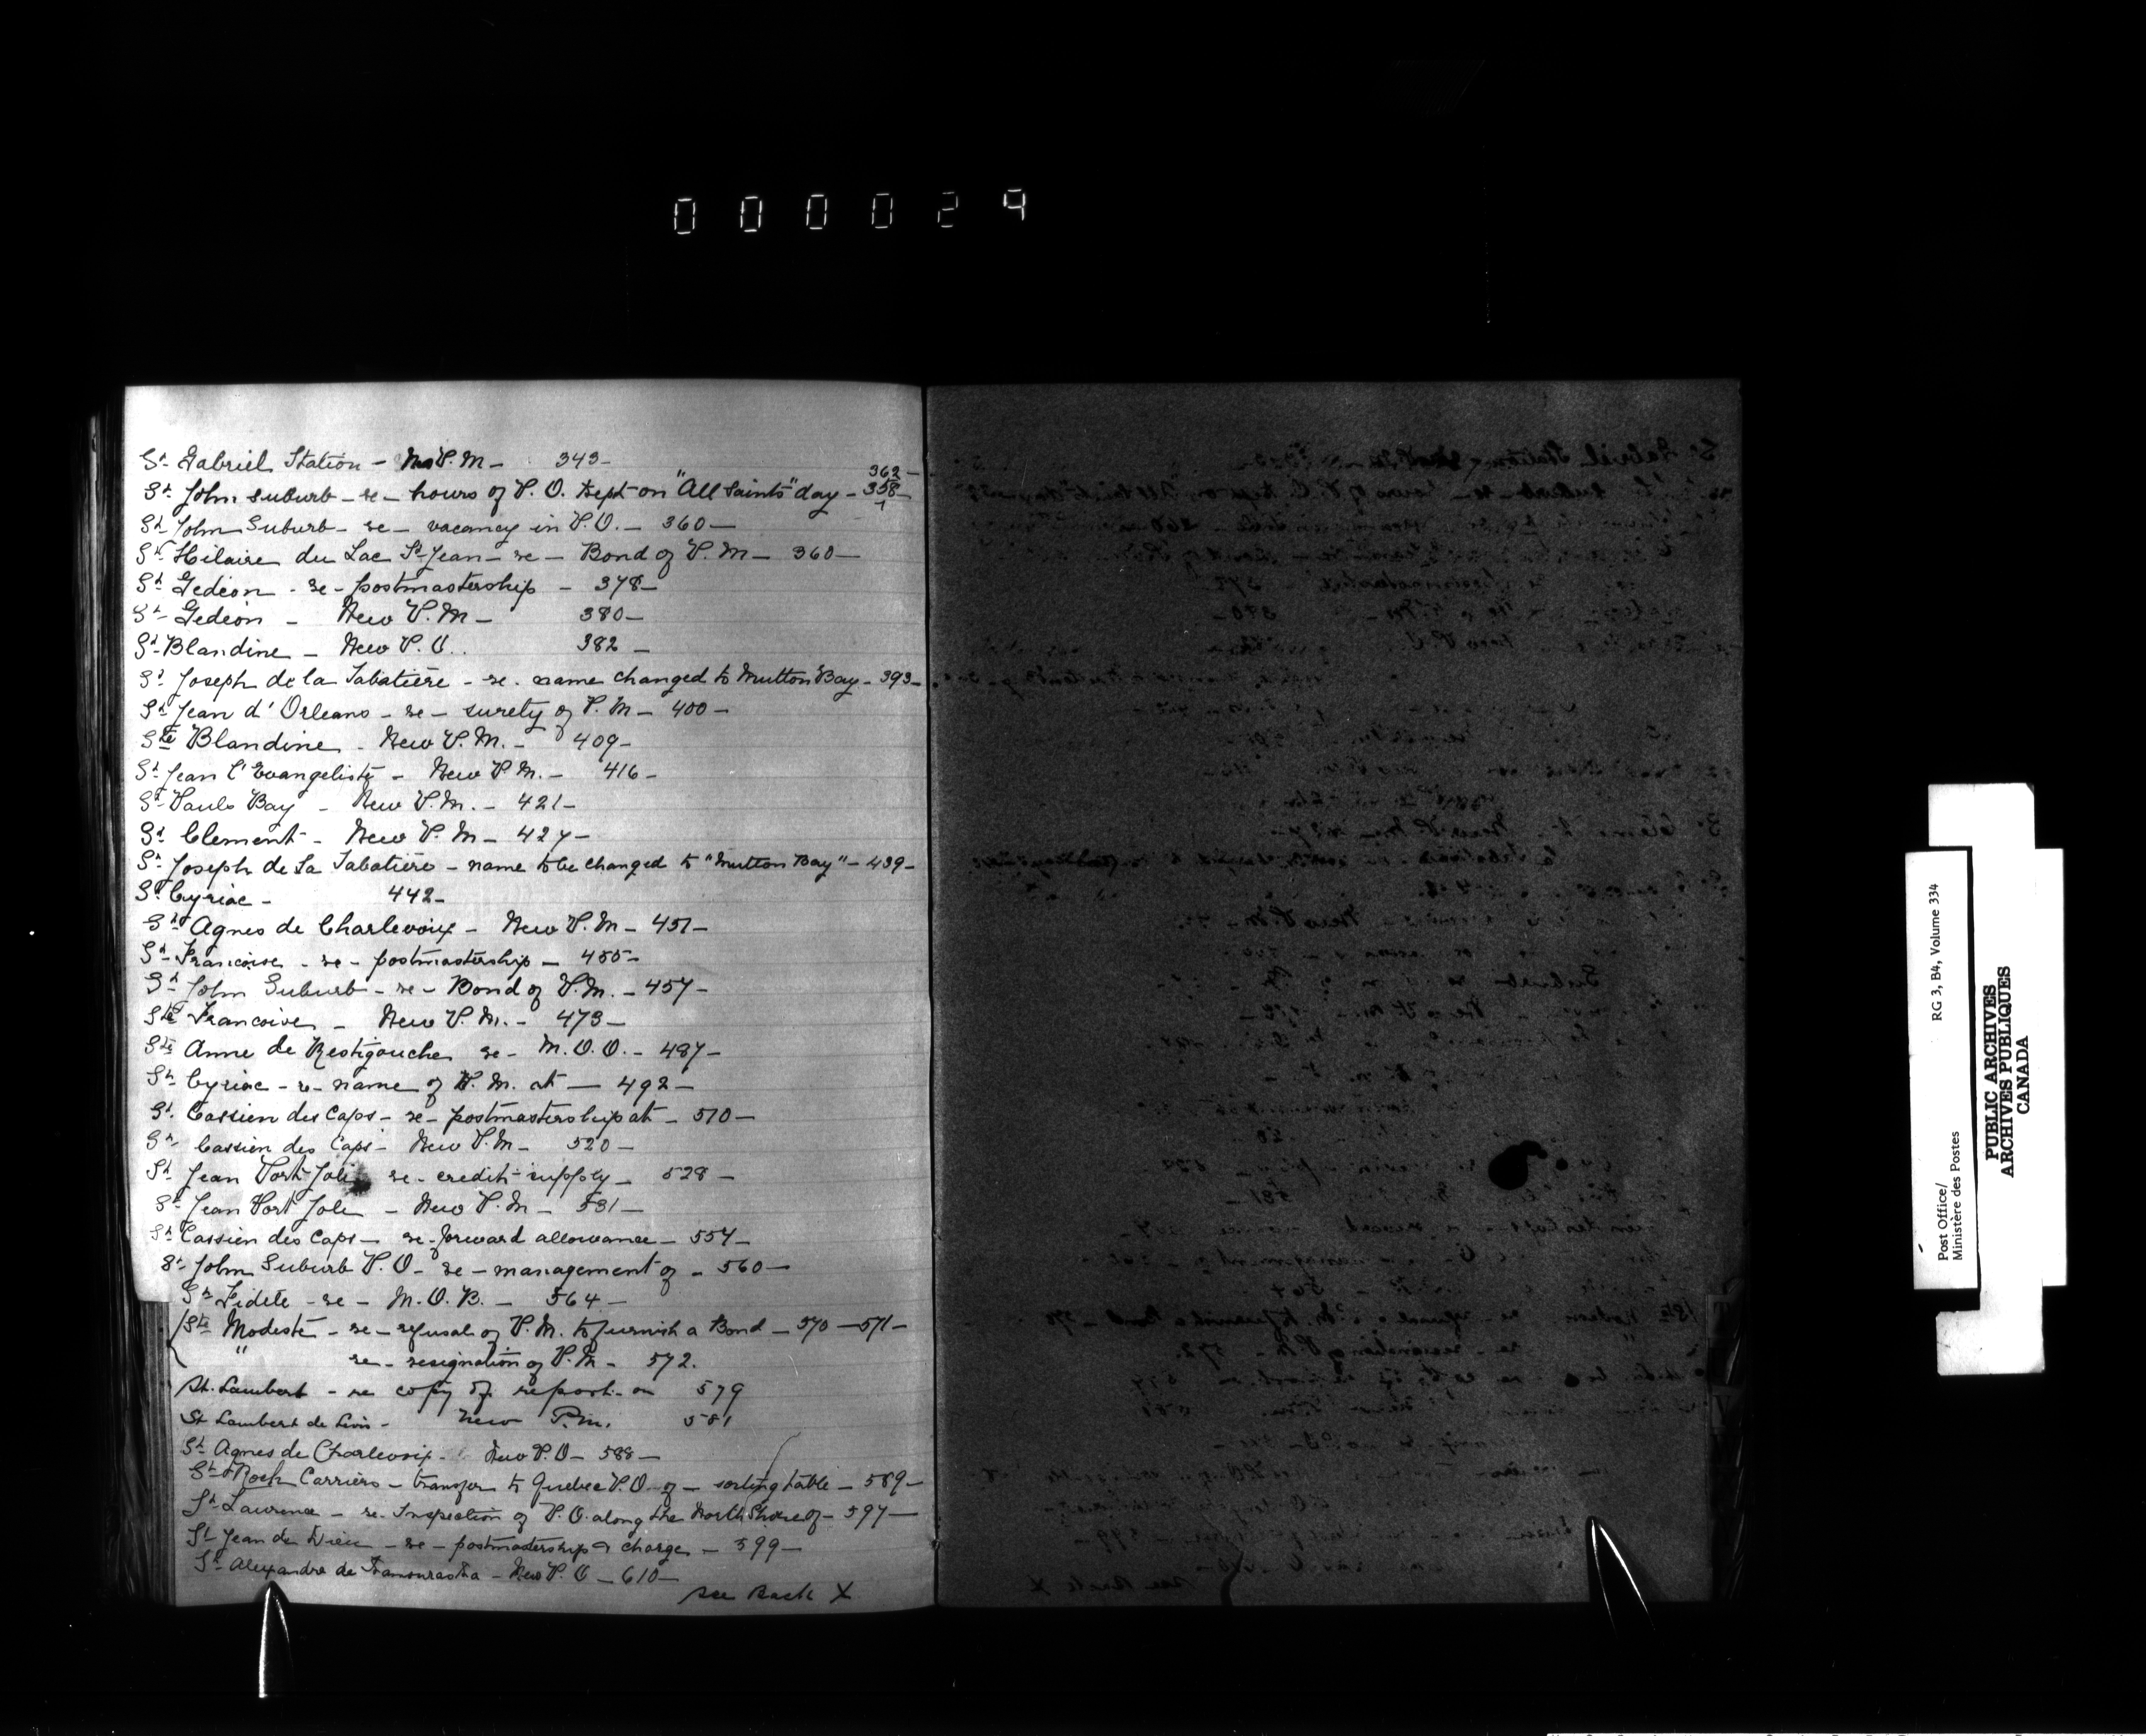 000029
St Gabriel Station - New P.M - 343 -
362 -
St John suburb - re - hours of P.O. Kept on "All Saints" day - 358 -
St John Suburb - re - vacancy in P.O. - 360 -
St Hilaire du Lac St Jean - re - Bond of P.M - 360 -
St Gedeon - re - postmastership - 378 -
St Gedeon - New P.M - 380 -
St Blandine - New P.O. 382 -
St Joseph de la Tabatiere - re. name changed to Mutton Bay - 393 -
St Jean d'Orleans - re - surety of P.M - 400 -
Ste Blandine - New P.M. - 409 -
St Jean l'Evangeliste - New P.M. - 416 -
St Pauls Bay - New P.M. - 421 -
St Clement - New P.M - 427 -
St Joseph de La Tabatiere - name to be changed to "Mutton Bay" - 439 -
St Cyriac - 442 -
St Agnes de Charlevoix - New P.M - 451 -
St Francoise - re - postmastership - 455 -
St John Suburb - re - Bond of P.M. - 457 -
Ste Francoise - New P.M. - 473 -
Ste Anne de Restigouche re - M.O.O. - 487 -
St Cyriac - re - name of P.M. at - 492 -
St. Cassien des Caps - re - postmastership at - 510 -
St Cassien des Caps - New P.M - 520 -
St Jean Port Joli re - credit supply - 528 -
St Jean Port Joli - New P.M - 531 -
St Cassien des Caps - re - forward allowance - 554 -
St John Suburb P.O - re - management of - 560 -
St Fidele - re - M.O.B. - 564 -
Ste Modeste - re - refusal of P.M. to furnish a Bond - 570 - 571 -
" re - resignation of P.M - 572.
St. Lambert - re copy of report on 579
St Lambert de Levis - New P.M. 581
St Agnes de Charlevoix - New P.O - 588 -
St Roch Carriers - transfer to Quebec P.O. of - sorting table - 589 -
St Laurence - re. Inspection of P.O. along the North Shore of - 597 -
St Jean de Dieu - re - postmastership & charge - 599 -
St Alexandre de Kamouraska - New P.O - 610 -
see Back X
RG 3, B4, Volume 334
Post Office/
Ministère des Postes
PUBLIC ARCHIVES
ARCHIVES PUBLIQUES
CANADA